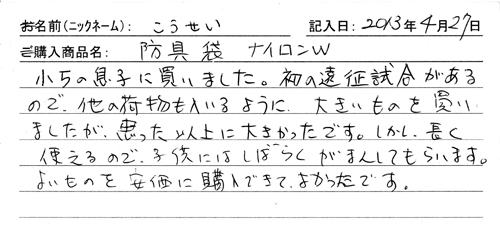 お名前(ニックネーム): こうせい 記入日: 2013年4月27日
ご購入商品名: 防具袋 ナイロンW
小5の息子に買いました。初の遠征試合がある
ので、他の荷物も入いるように、大きいものを買い
ましたが、思った以上に大きかったです。しかし、長く
使えるので、子供にはしばらくがまんしてもらいます。
よいものを安価に購入できて、よかったです。